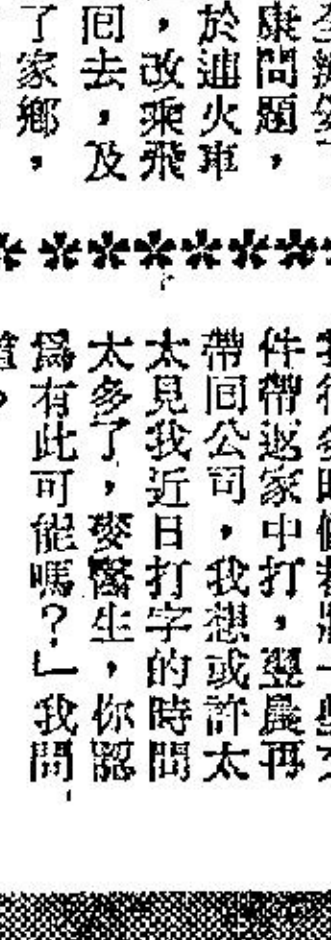 康問題，
於連火車
，改乘飛
囘去，及
了家鄉，
件帶返家中打，翌晨再
帶囘公司，我想或許太
太見我近日打字的時間
太多了，麥醫生，你認
爲有此可能嗎？」我問